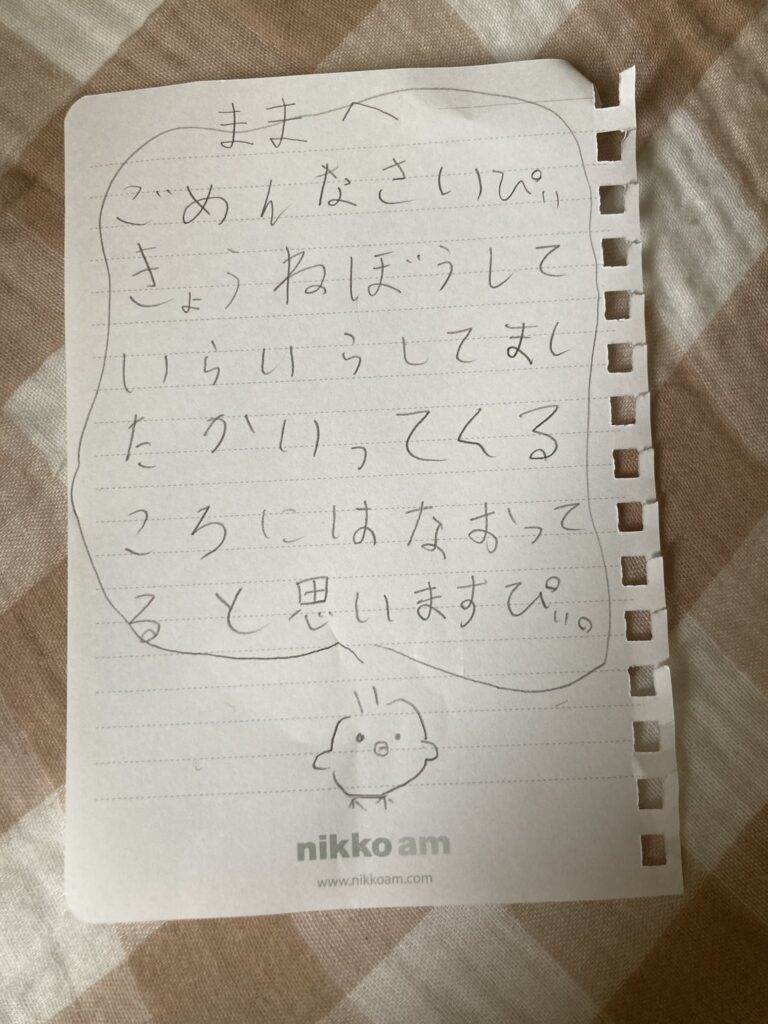 ままへ
ごめんなさいぴ、、
きょうねぼうして
いらいらしてまし
たかいってくる
ころにはなおって
ると思いますぴ、、。
nikko am
www.nikkoam.com